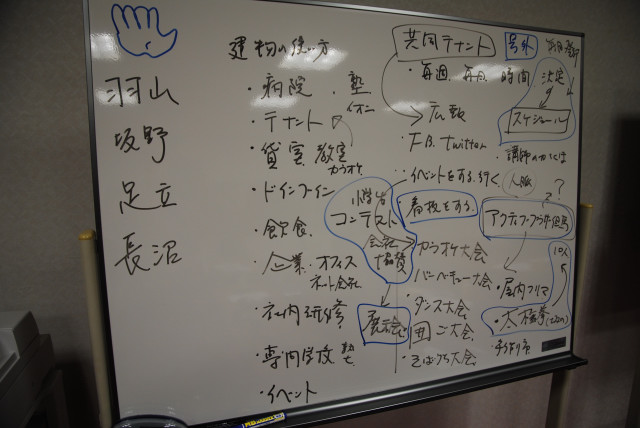 羽山
坂野
足立
長沼
建物の使い方
・病院 、塾
イオン
・テナント
・貸室 教室
カラオケ
・ドインフイン
・飲食
・企業・オフィス
ネット会社
・社内研修
・専門学校
・イベント
共同テナント
号外
・毎週、毎月、時間
決定
スケジュール
広報
・F.B. twitter
・講師の方には
・イベントをする、行く
人脈
?
小学生
コンテスト
会社
協賛
看板をする
カラオケ大会
バーベキュー大会
・ダンス大会
・囲ご大会
・そばうち大会
展示会
?
10人
・屋内フリマ
・太極拳
・手作り市